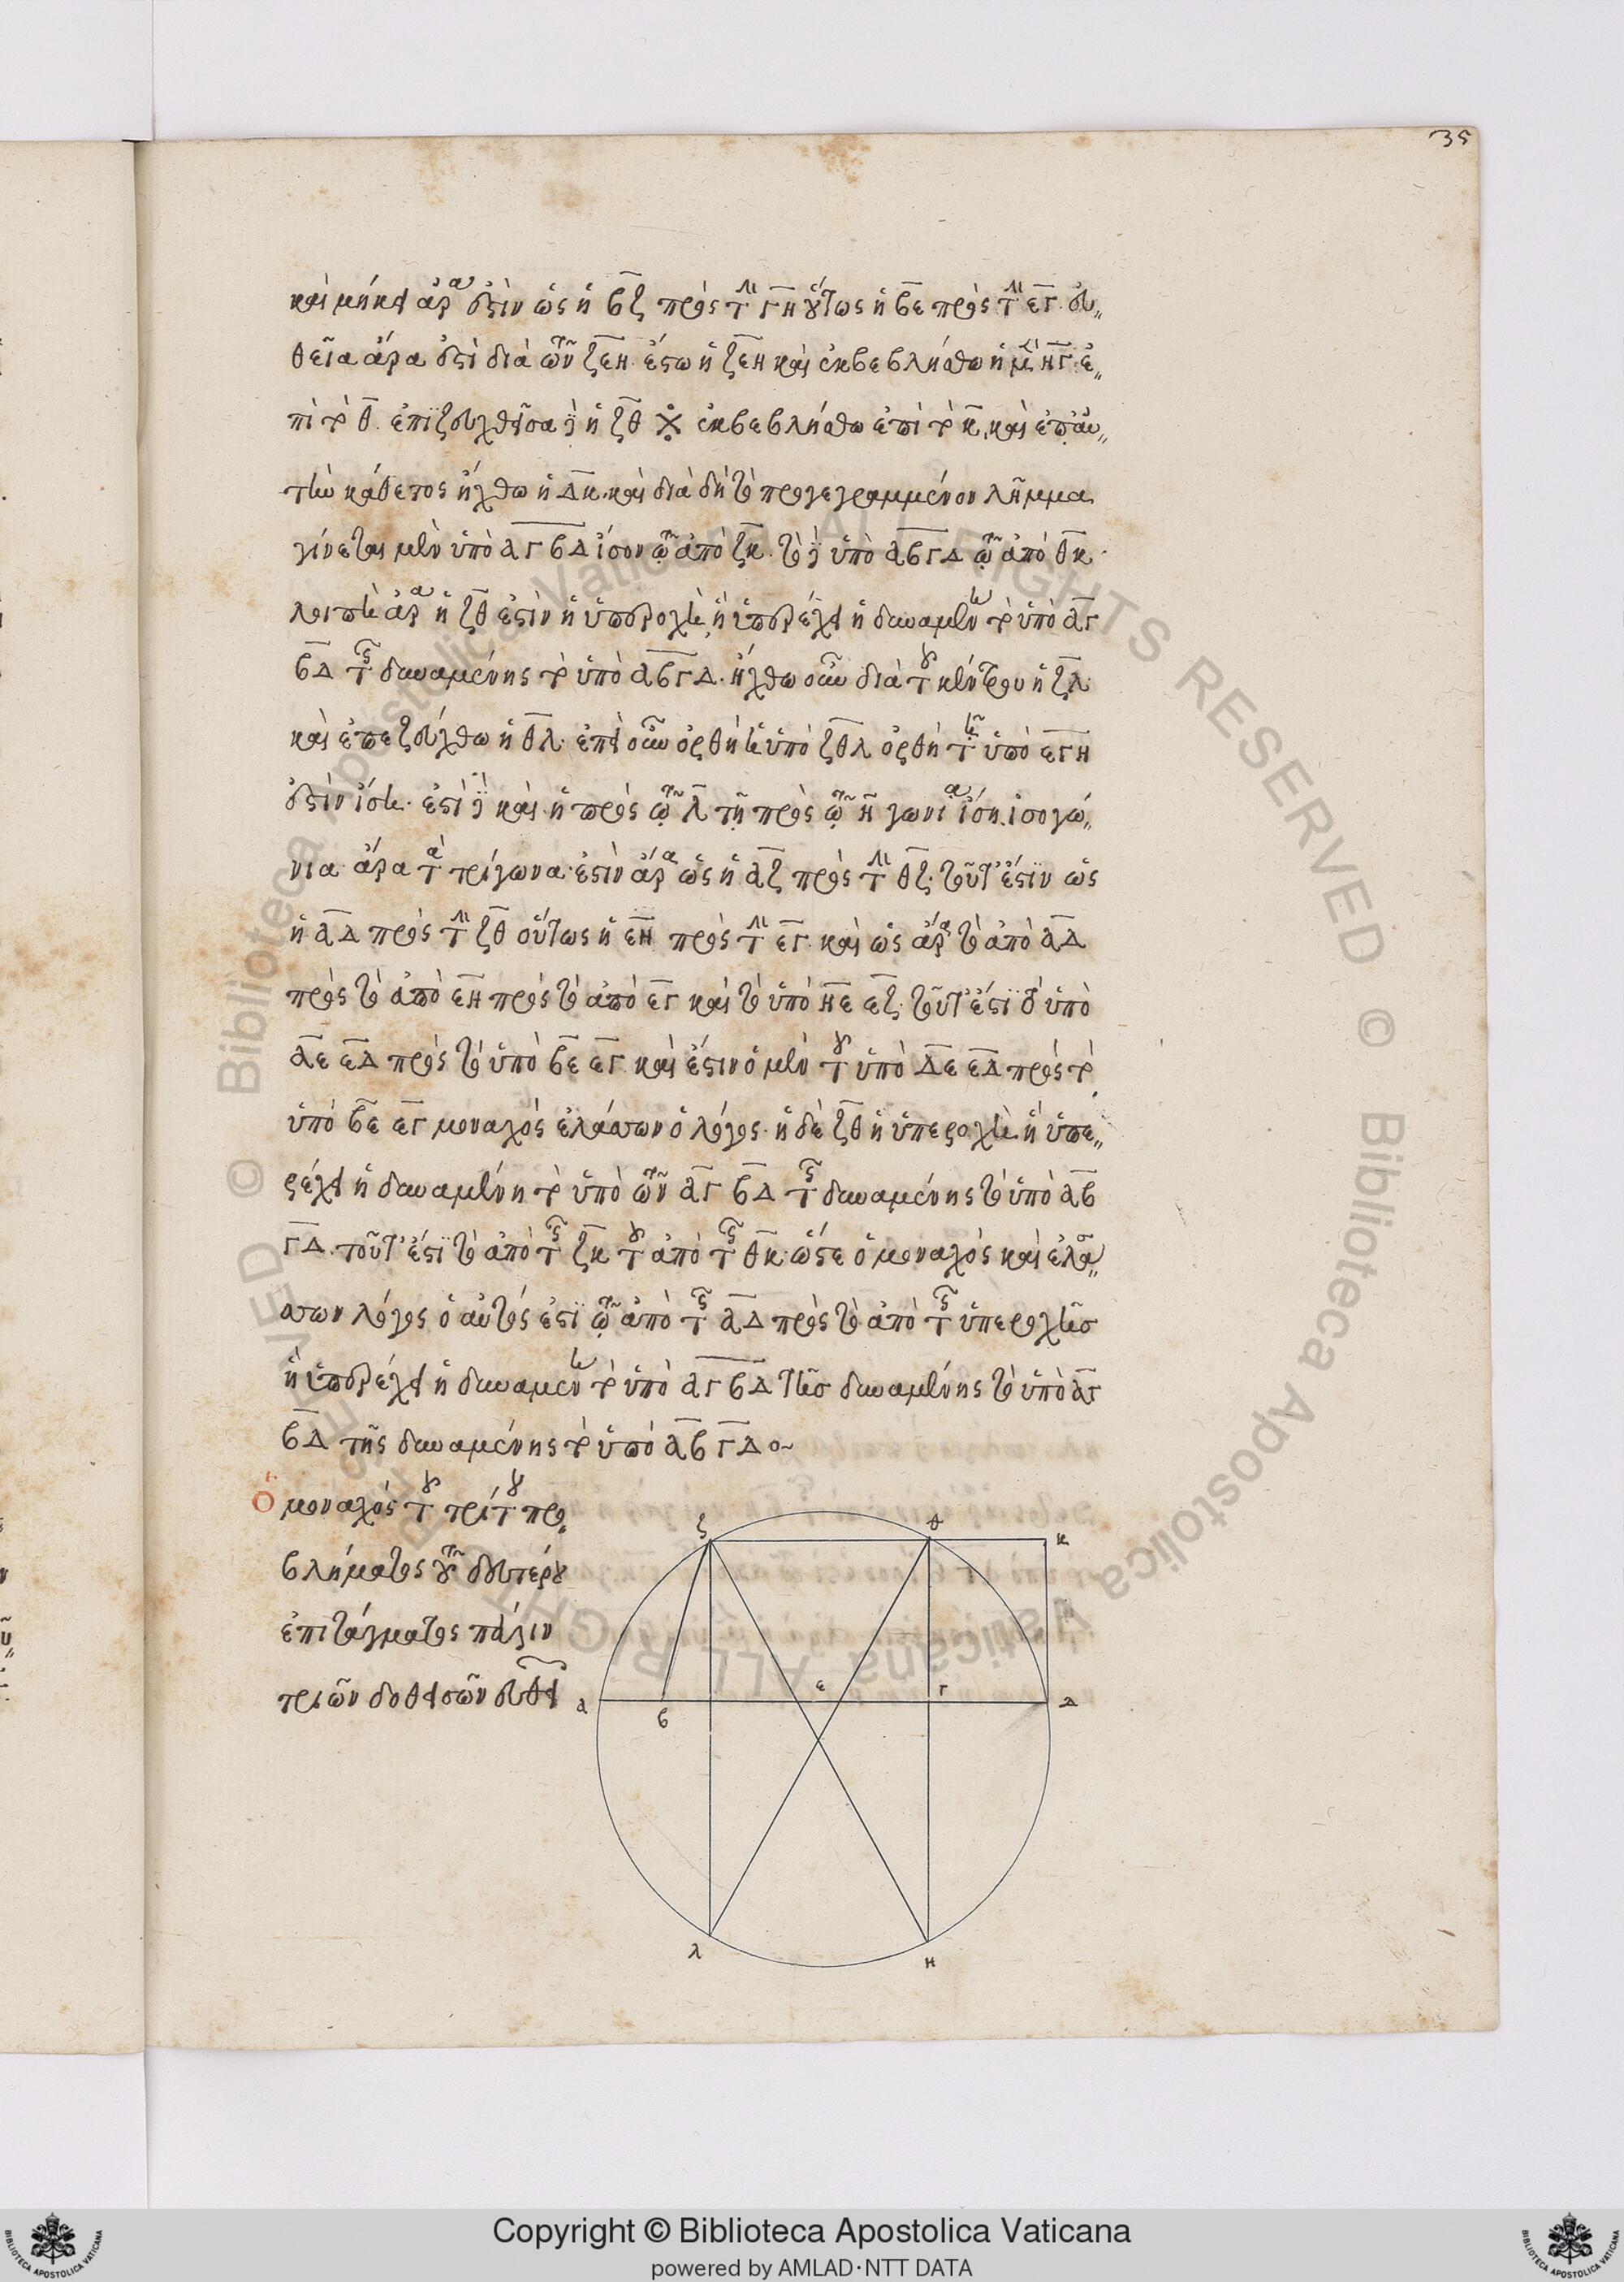 35
καὶ μήκει ἄρα ἐστὶν ὡς ἡ ΒΖ πρὸς τὴν ΓΗ οὕτως ἡ ΒΕ πρὸς τὴν ΕΓ· εὐ〃
θεῖα ἄρα ἐστὶ διὰ τῶν ΖΕΗ. ἔστω ἡ ΖΕΗ καὶ ἐκβεβλήσθω ἡ μὲν ΗΓ ἐ〃
πὶ τὸ Θ. ἐπιζευχθεῖσα δὲ ἡ ΖΘ ἐκβεβλήσθω ἐπὶ τὸ Κ, καὶ ἐπ' αὐ〃
τὴν κάθετος ἤχθω ἡ ΔΚ. καὶ διὰ δὴ τὸ προγεγραμμένον λῆμμα
γίνεται μὲν ὑπὸ ΑΓ ΒΔ ἴσον τῷ ἀπὸ ΖΚ. τὸ δὲ ὑπὸ ΑΒ ΓΔ τῷ ἀπὸ ΘΚ.
λοιπὴ ἄρα ἡ ΖΘ ἐστὶν ἡ ὑπεροχὴ, ᾗ ὑπερέχει ἡ δυναμένη τὸ ὑπὸ ΑΓ
ΒΔ τῆς δυναμένης τὸ ὑπὸ ΑΒ ΓΔ. ἤχθω οὖν διὰ τοῦ κέντρου ἡ ΖΛ
καὶ ἐπεζεύχθω ἡ ΘΛ. ἐπεὶ οὖν ὀρθὴ ἡ ὑπὸ ΖΘΛ ὀρθῇ τῇ ὑπὸ ΕΓΗ
ἐστὶν ἴση. ἔστι δὲ καὶ ἡ πρὸς τῷ Λ τῇ πρὸς τῷ Η γωνίᾳ ἴση. ἰσογώ〃
νια ἄρα τὰ τρίγωνα· ἔστιν ἄρα ὡς ἡ ΛΖ πρὸς τὴν ΘΖ. τοῦτ' ἔστιν ὡς
ἡ ΑΔ πρὸς τὴν ΖΘ οὕτως ἡ ΕΗ πρὸς τὴν ΕΓ. καὶ ὡς ἄρα τὸ ἀπὸ ΑΔ
πρὸς τὸ ἀπὸ ΕΗ πρὸς τὸ ἀπὸ ΕΓ καὶ τὸ ὑπὸ ΗΕ ΕΖ. τοῦτ' ἔστι τὸ ὑπὸ
ΑΕ ΕΔ πρὸς τὸ ὑπὸ ΒΕ ΕΓ. καὶ ἔστιν ὁ μὲν τοῦ ὑπὸ ΔΕ ΕΔ πρὸς τὸ
ὑπὸ ΒΕ ΕΓ μοναχὸς ἐλάσσων ὁ λόγος. ἡ δὲ ΖΘ ἡ ὑπεροχὴ ᾗ ὑπε〃
ρέχει ἡ δυναμένη τὸ ὑπὸ τῶν ΑΓ ΒΔ τῆς δυναμένης τὸ ὑπὸ ΑΒ
ΓΔ. τοῦτ' ἔστι τὸ ἀπὸ τῆς ΖΚ τοῦ ἀπὸ τῆς ΘΚ. ὥστε ὁ μοναχὸς καὶ ἐλά〃
σσων λόγος ὁ αὐτός ἐστι τῷ ἀπὸ τῆς ΑΔ πρὸς τὸ ἀπὸ τῆς ὑπεροχῆς
ᾗ ὑπερέχει ἡ δυναμένη τὸ ὑπὸ ΑΓ ΒΔ τῆς δυναμένης τὸ ὑπὸ ΑΓ
ΒΔ τῆς δυναμένης τὸ ὑπὸ ΑΒ ΓΔ
Ὁ μοναχὸς τοῦ τρίτου προ
βλήματος τοῦ δευτέρου
ἐπιτάγματος πάλιν
τριῶν δοθεισῶν εὐθει
ζ θ κ
α β ε γ δ
λ η
Copyright © Biblioteca Apostolica Vaticana
powered by AMLAD·NTT DATA